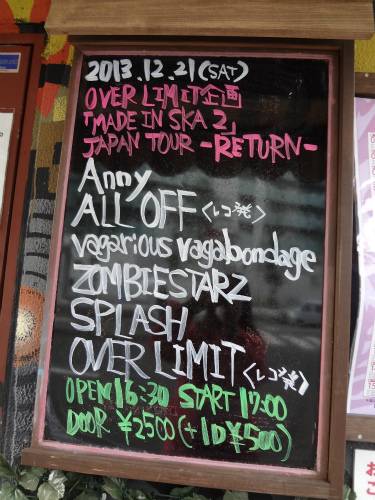 2013.12.21(SAT)
OVER LIMIT企画
「MADE IN SKA 2」
JAPAN TOUR -RETURN-
Anny
ALL OFF〈レコ発〉
vagarious vagabondage
ZOMBIESTARZ
SPLASH
OVER LIMIT〈レコ発〉
OPEN 16:30 START 17:00
DOOR ¥2500(+1D¥500)